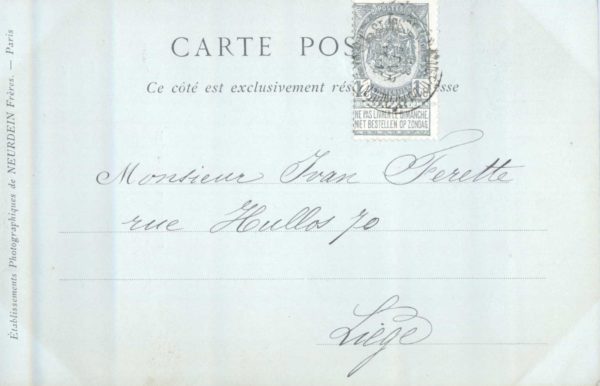 CARTE POS
Ce côté est exclusivement rés sse
POSTES
1 1
NE PAS LIVRER LE DIMANCHE
NIET BESTELLEN OP ZONDAG
Monsieur Ivan Ferette
rue Hullos 70
Liège
Établissements Photographiques de NEURDEIN Frères. — Paris